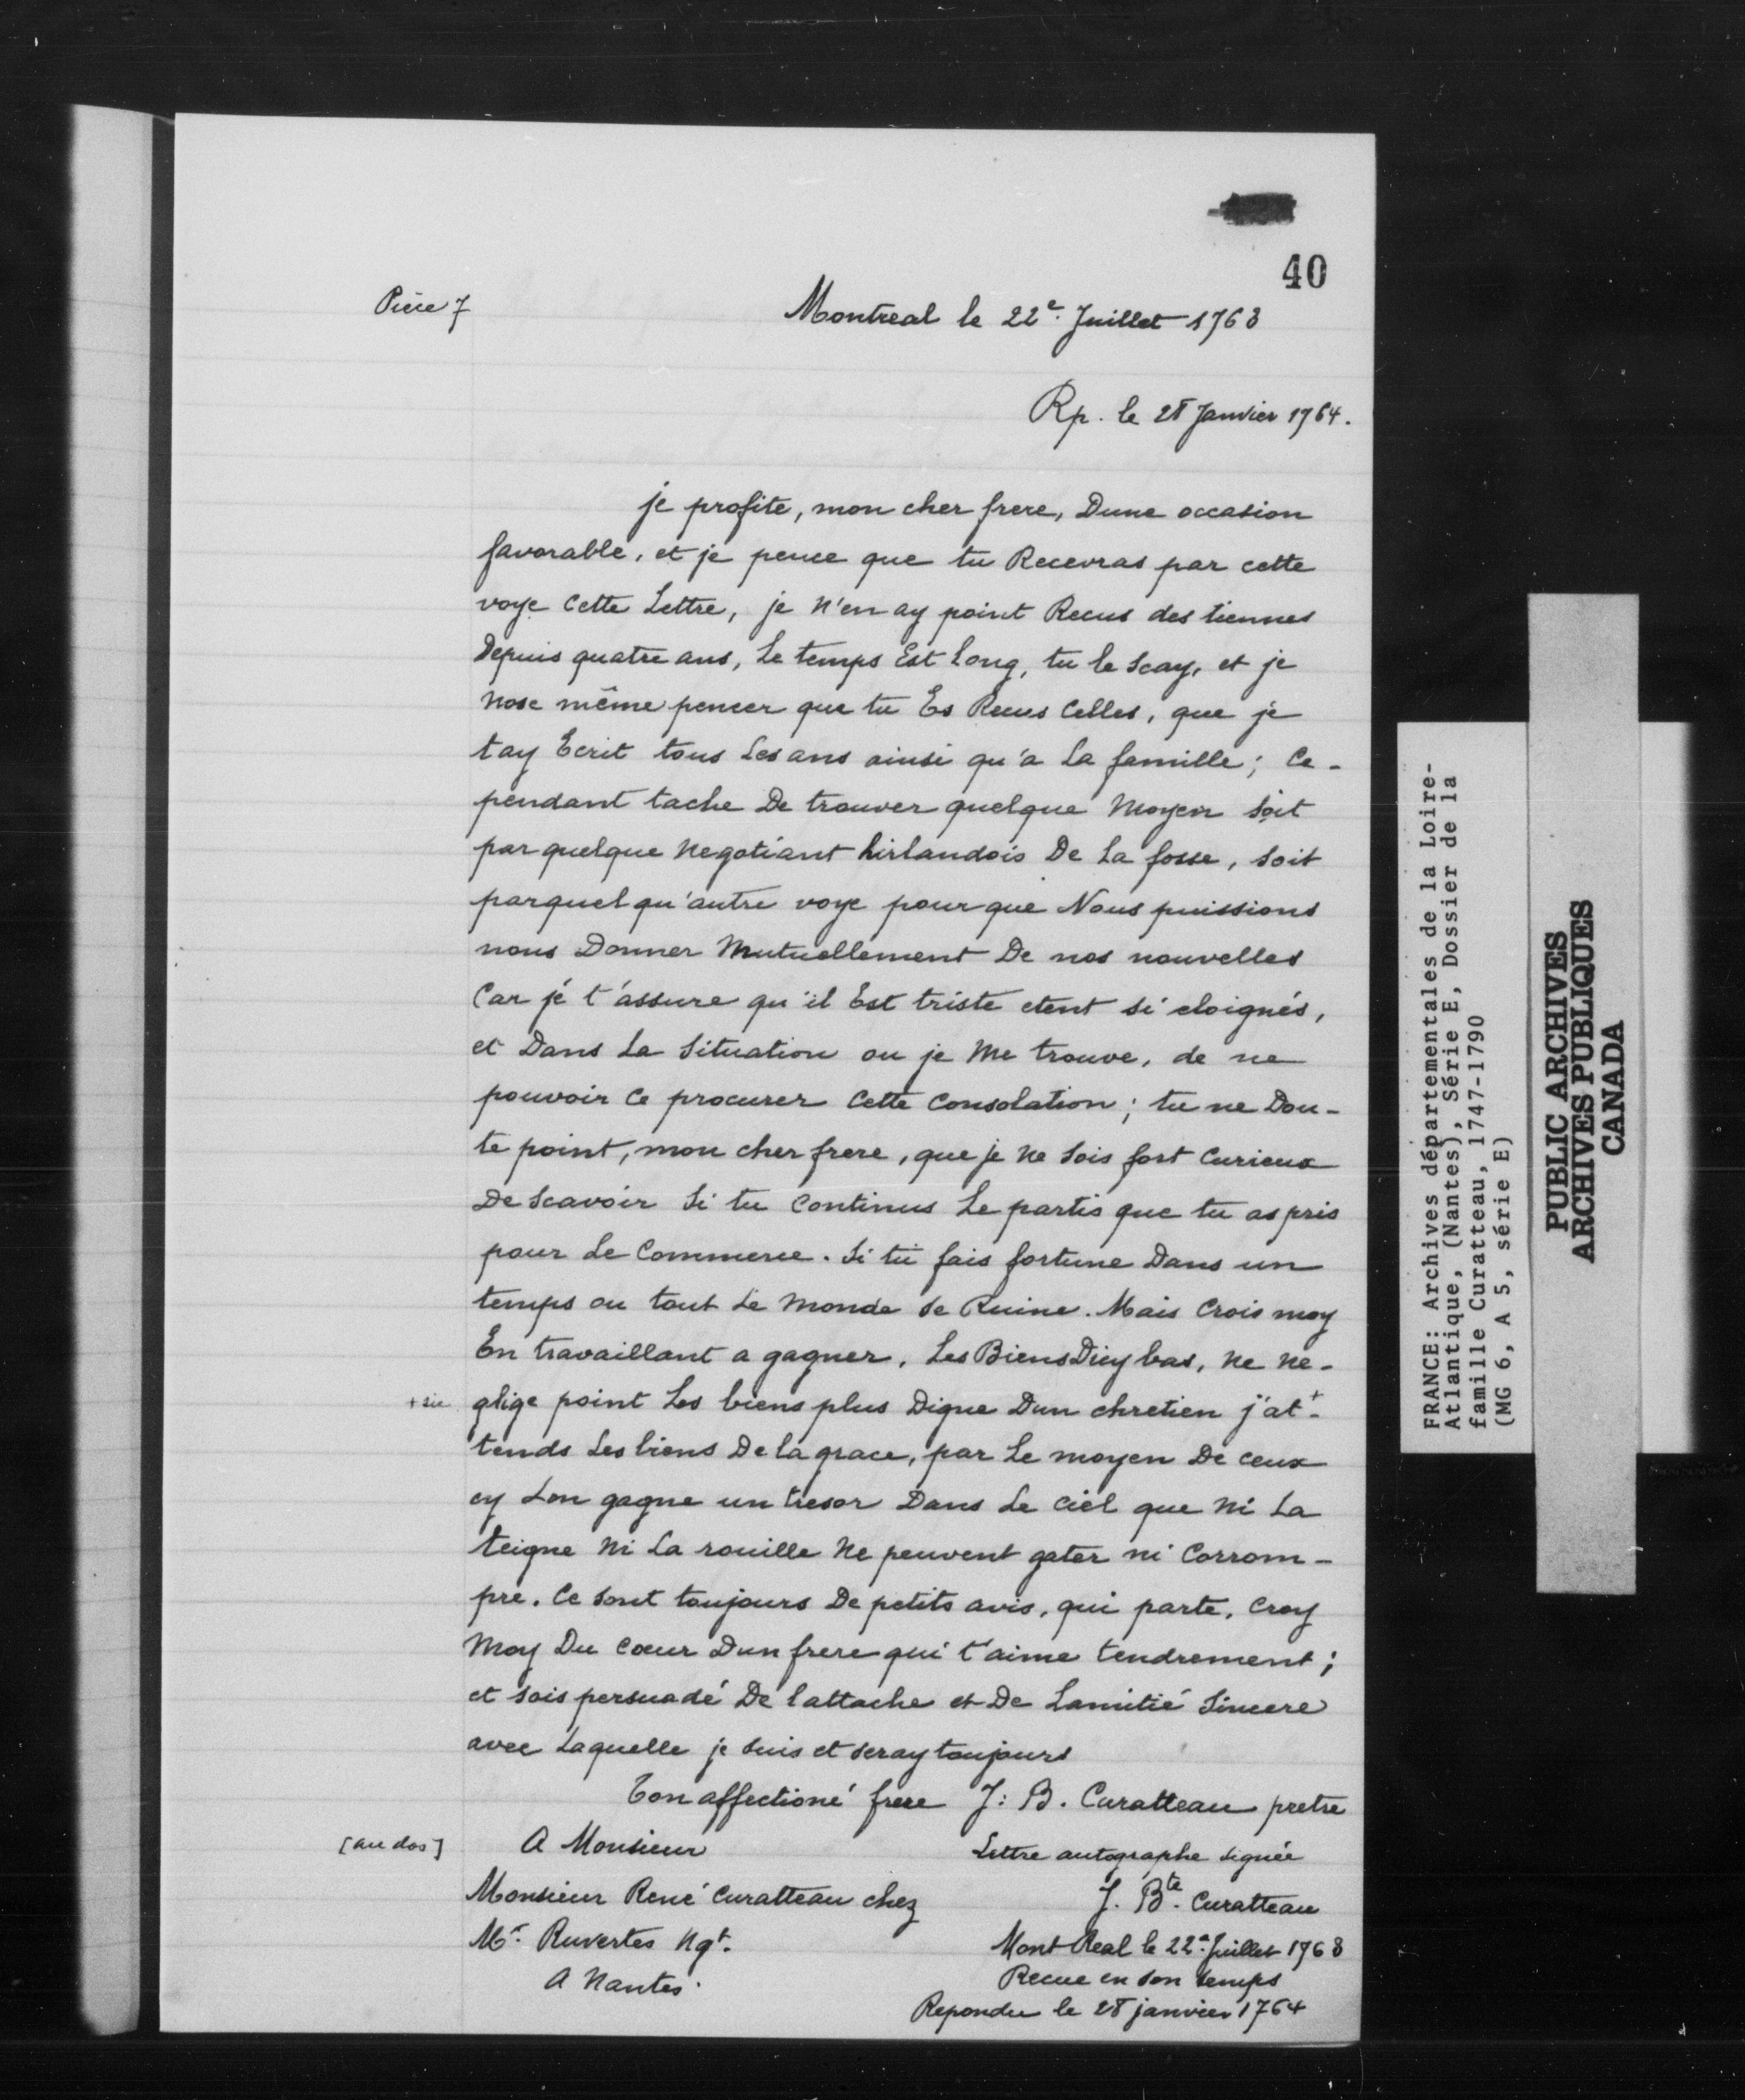 40
Pièce 7
Montreal le 22e. Juillet 1763
Rp. le 28 Janvier 1764.
je profite, mon cher frere, Dune occasion
favorable, et je pence que tu Recevras par cette
voye cette Lettre, je n'en ay point Recus des tiennes
Depuis quatre ans, Le temps Est Long, tu le scay, et je
nose même pencer que tu Es Recus Celles, que je
tay Ecrit tous Les ans ainsi qu'a La famille; Ce-
pendant tache De trouver quelque Moyen soit
par quelque Negotiant hirlandois De La fosse, soit
parquelqu'autre voye pour que Nous puissions
nous Donner Mutuellement De nos nouvelles
Car je t'assure qu'il Est triste etent si eloignés,
et Dans La Situation ou je Me trouve, de ne
pouvoir Ce procurer Cette Consolation; tu ne Dou-
te point, mon cher frere, que je Ne sois fort Curieux
De Scavoir Si tu Continus Le partis que tu as pris
pour Le Commerce. Si tu fais fortune Dans un
temps ou tout Le Monde se Ruine. Mais Crois moy
En travaillant a gagner, Les Biens Dicy bas, Ne Ne-
+ sic glige point Les biens plus Digne Dun chretien j'at+-
tends Les biens De la grace, par Le moyen De ceux
cy Lon gagne un tresor Dans Le Ciel que Ni La
teigne Ni La rouille Ne peuvent gater ni Corrom-
pre. Ce sont toujours De petits avis, qui parte, Croy
Moy Du Cœur Dun frere qui t'aime tendrement;
et sois persuadé De lattache et De Lamitié Sincere
avec Laquelle je suis et seray toujours
Ton affectioné frere J: B. Curatteau pretre
[au dos] A Monsieur
Monsieur René Curatteau chez
Mr. Ruvertes Ngt.
A Nantes.
Lettre autographe signée
J. Bte. Curatteau
Mont Real le 22e. Juillet 1763
Recue en son temps
Repondu le 28 janvier 1764
FRANCE: Archives départementales de la Loire-
Atlantique, (Nantes), Série E, Dossier de la
famille Curatteau, 1747-1790
(MG 6, A 5, série E)
PUBLIC ARCHIVES
ARCHIVES PUBLIQUES
CANADA